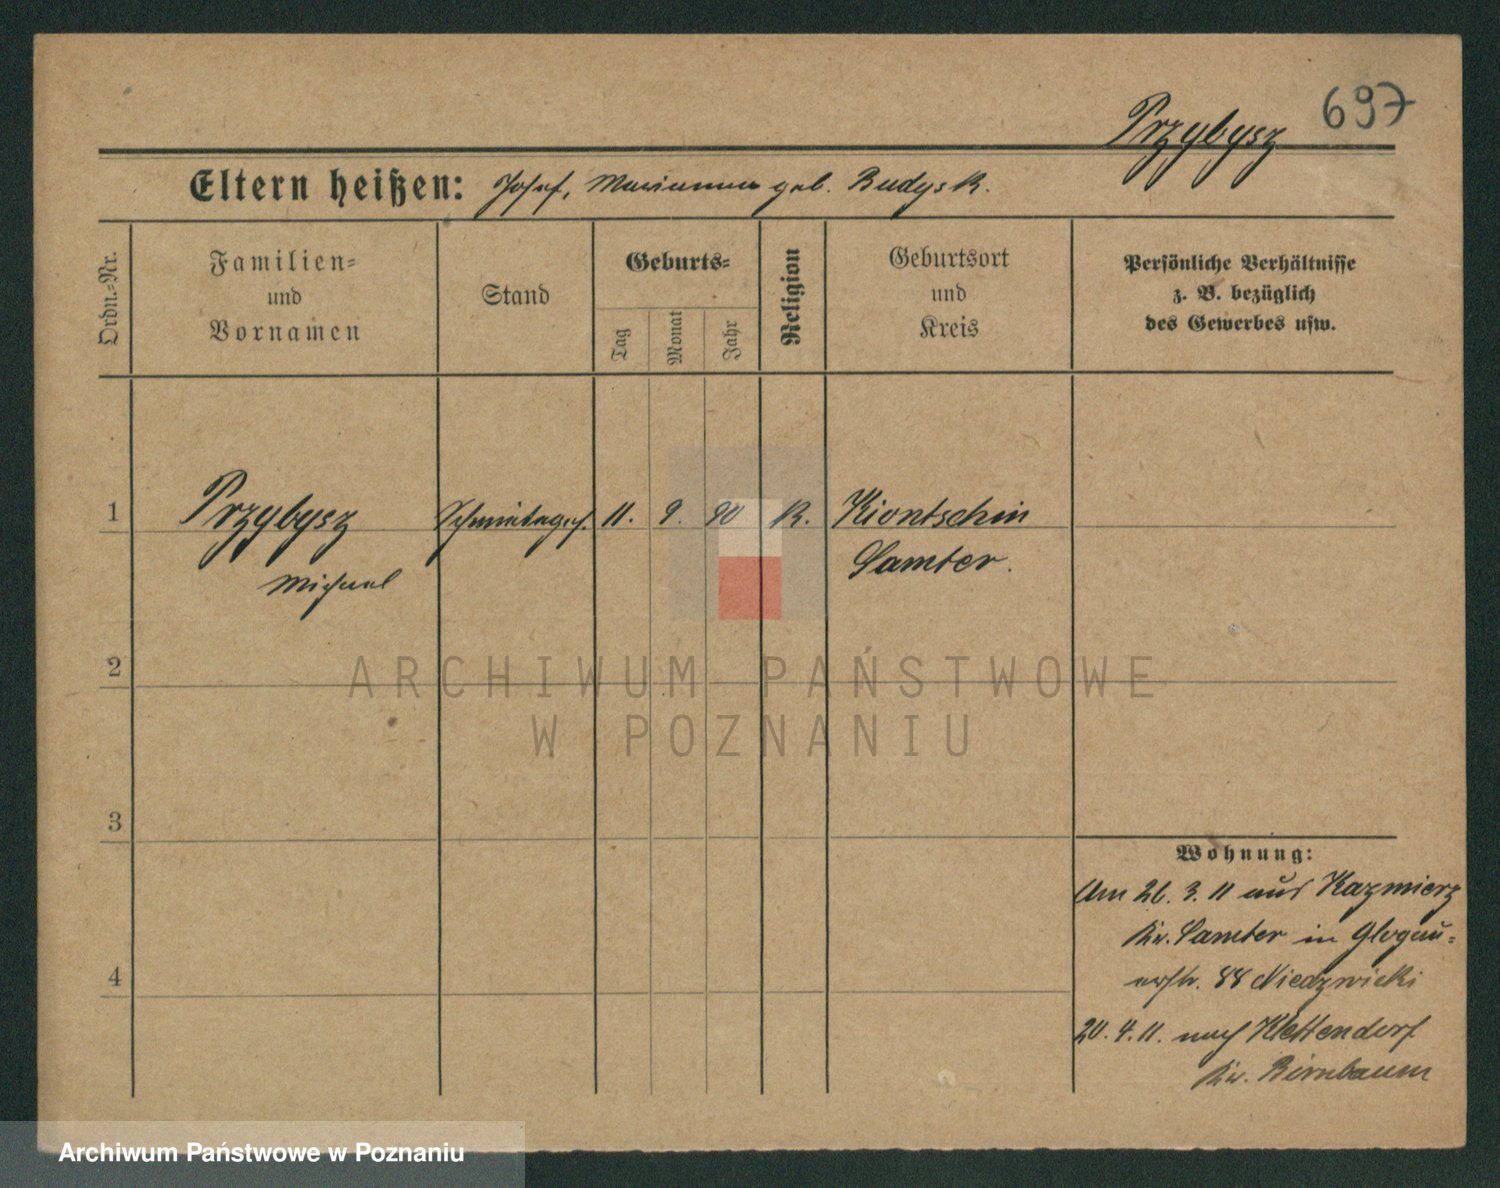 697
Przybysz
Eltern heißen: Josef, Marianna geb. Budysk.
Ordn.-Nr.
Familien-
und
Vornamen
Stand
Geburts-
Tag
Monat
Jahr
Religion
Geburtsort
und
Kreis
Persönliche Verhältnisse
z. B. bezüglich
des Gewerbes usw.
1 Przybysz 11. 9. 90 K. Kiontschin
Michael Samter.
ARCHIWUM PAŃSTWOWE
W POZNANIU
2
3
4
Wohnung:
Am 26. 3. 11 aus Kazmierz
Kr. Samter in Glogau-
erstr. 88 Niedzwicki
20. 4. 11. nach Klettendorf
Kr. Birnbaum
Archiwum Państwowe w Poznaniu